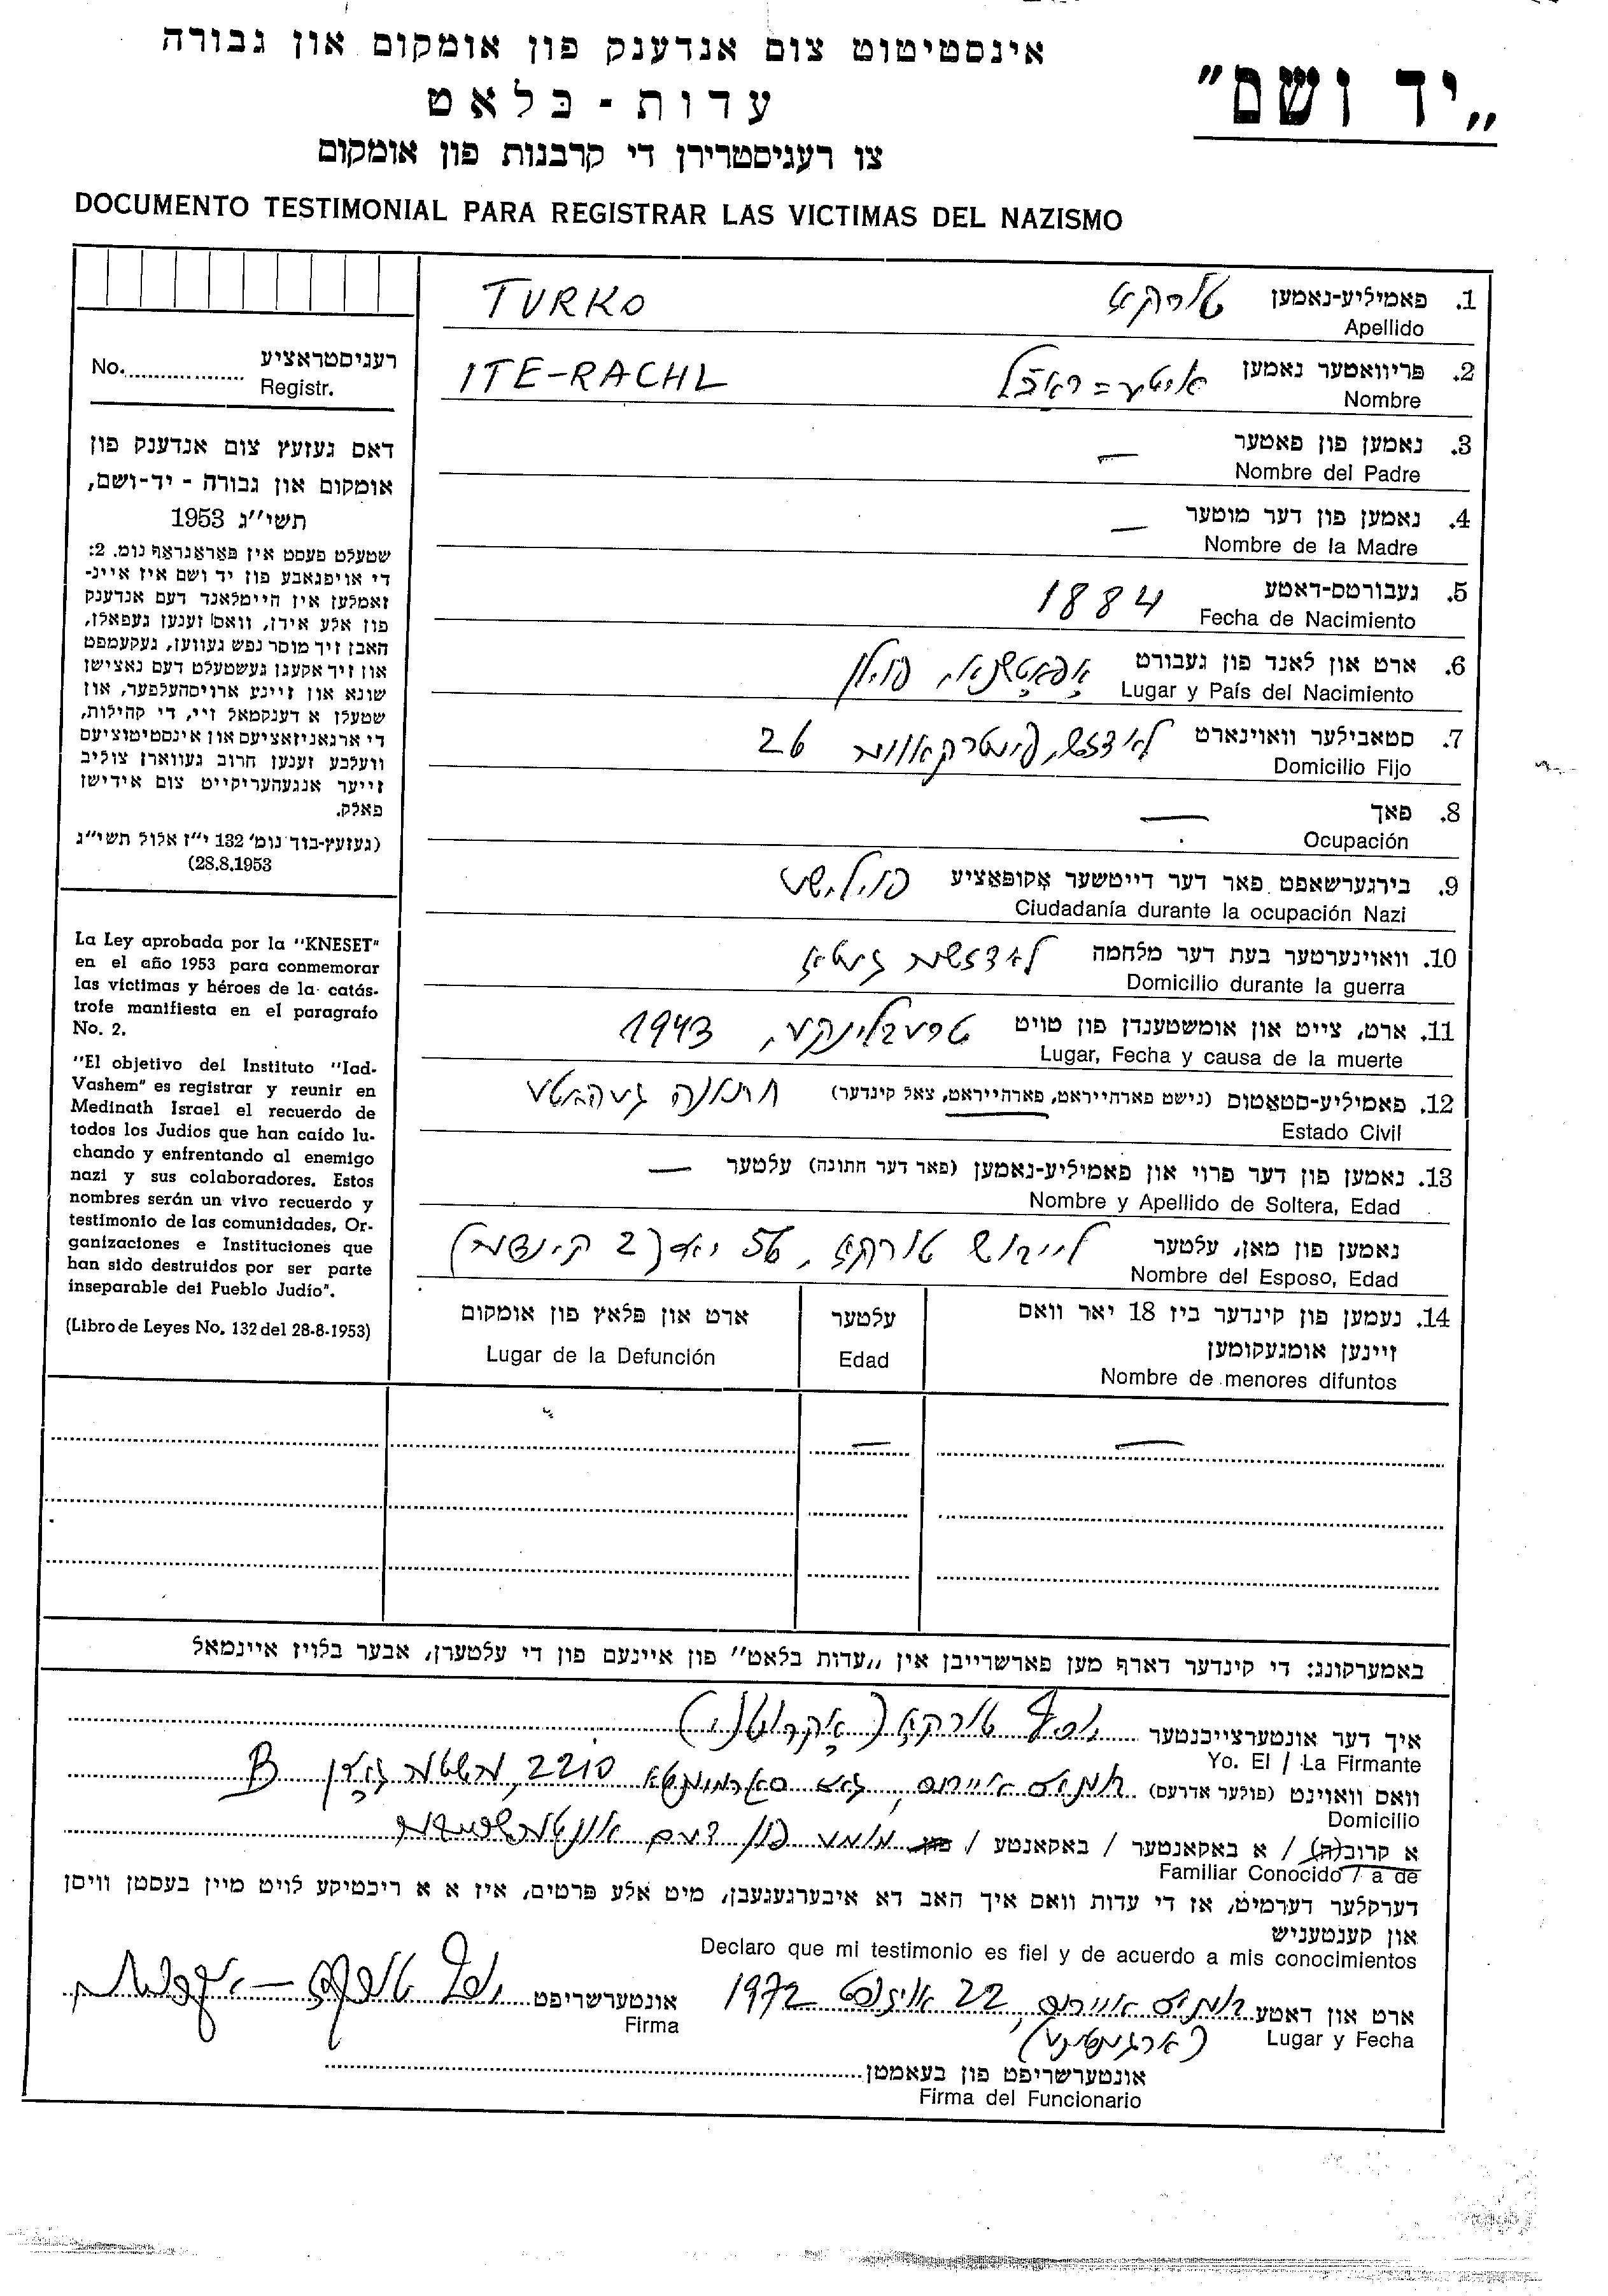 „יד ושם"
אינסטיטוט צום אנדענק פון אומקום און גבורה
עדות - בלאט
צו רעגיסטרירן די קרבנות פון אומקום
DOCUMENTO TESTIMONIAL PARA REGISTRAR LAS VICTIMAS DEL NAZISMO
רעגיסטראציע No.
Registr.
דאס געזעץ צום אנדענק פון
אומקום און גבורה - יד-ושם,
תשי"ג 1953
שטעלט פעסט אין פאראגראף נומ. 2:
די אויפגאבע פון יד ושם איז איינ-
זאמלען אין היימלאנד דעם אנדענק
פון אלע אידן, וואס זענען געפאלן,
האבן זיך מוסר נפש געווען, געקעמפט
און זיך אקעגן געשטעלט דעם נאצישן
שונא און זיינע ארויסהעלפער, און
שטעלן א דענקמאל זיי, די קהילות,
די ארגאניזאציעס און אינסטיטוציעס
וועלכע זענען חרוב געווארן צוליב
זייער אנגעהעריקייט צום אידישן
פאלק.
(געזעץ-בוך נומ' 132 י"ז אלול תשי"ג
28.8.1953)
La Ley aprobada por la "KNESET"
en el año 1953 para conmemorar
las víctimas y héroes de la catás-
trofe manifiesta en el paragrafo
No. 2.
"El objetivo del Instituto "Iad-
Vashem" es registrar y reunir en
Medinath Israel el recuerdo de
todos los Judios que han caído lu-
chando y enfrentando al enemigo
nazi y sus colaboradores. Estos
nombres serán un vivo recuerdo y
testimonio de las comunidades, Or-
ganizaciones e Instituciones que
han sido destruidos por ser parte
inseparable del Pueblo Judío".
(Libro de Leyes No. 132 del 28-8-1953)
1. פאמיליע-נאמען טורקא TURKO
Apellido
2. פריוואטער נאמען איטע=ראכל ITE-RACHL
Nombre
3. נאמען פון פאטער —
Nombre del Padre
4. נאמען פון דער מוטער —
Nombre de la Madre
5. געבורטס-דאטע 1884
Fecha de Nacimiento
6. ארט און לאנד פון געבורט אפאטשנא, פוילן
Lugar y País del Nacimiento
7. סטאבילער וואוינארט לאדזש, פיטרקאווער 26
Domicilio Fijo
8. פאך —
Ocupación
9. בירגערשאפט פאר דער דייטשער אקופאציע פויליש
Ciudadanía durante la ocupación Nazi
10. וואוינערטער בעת דער מלחמה לאדזשער געטא
Domicilio durante la guerra
11. ארט, צייט און אומשטענדן פון טויט טרעבלינקע, 1943
Lugar, Fecha y causa de la muerte
12. פאמיליע-סטאטוס (נישט פארהייראט, פארהייראט, צאל קינדער) חתונה געהאטע
Estado Civil
13. נאמען פון דער פרוי און פאמיליע-נאמען (פאר דער חתונה) עלטער —
Nombre y Apellido de Soltera, Edad
נאמען פון מאן, עלטער לייבוש טורקא, 56 יאר (2 קינדער)
Nombre del Esposo, Edad
14. נעמען פון קינדער ביז 18 יאר וואס עלטער ארט און פלאץ פון אומקום
זיינען אומגעקומען
Nombre de menores difuntos Edad Lugar de la Defunción
— —
באמערקונג: די קינדער דארף מען פארשרייבן אין „עדות בלאט" פון איינעם פון די עלטערן, אבער בלויז איינמאל
איך דער אונטערצייכנטער יוסף טורקא
Yo. El / La Firmante
וואס וואוינט (פולער אדרעס) בוענאס איירעס, 2210 B
Domicilio
א קרוב(ה) / א באקאנטער / באקאנטע / מומע פון דעם
Familiar Conocido / a de
דערקלער דערמיט, אז די עדות וואס איך האב דא איבערגעגעבן, מיט אלע פרטים, איז א א ריכטיקע לויט מיין בעסטן וויסן
און קענטעניש
Declaro que mi testimonio es fiel y de acuerdo a mis conocimientos
ארט און דאטע בוענאס איירעס, 22 אויגוסט 1972 אונטערשריפט יוסף טורקא
Lugar y Fecha (ארגענטינע) Firma
אונטערשריפט פון בעאמטן
Firma del Funcionario